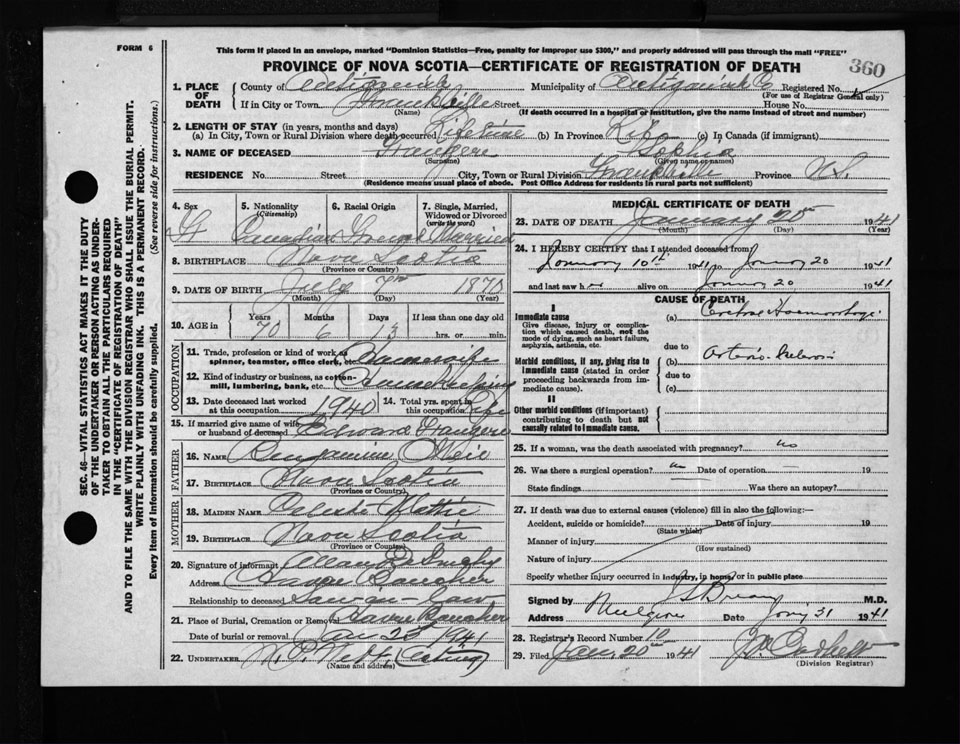 FORM 6
This form if placed in an envelope, marked "Dominion Statistics—Free, penalty for improper use $300," and properly addressed will pass through the mail "FREE"
PROVINCE OF NOVA SCOTIA—CERTIFICATE OF REGISTRATION OF DEATH
360
SEC. 46—VITAL STATISTICS ACT MAKES IT THE DUTY
OF THE UNDERTAKER OR PERSON ACTING AS UNDER-
TAKER TO OBTAIN ALL THE PARTICULARS REQUIRED
IN THE "CERTIFICATE OF REGISTRATION OF DEATH"
AND TO FILE THE SAME WITH THE DIVISION REGISTRAR WHO SHALL ISSUE THE BURIAL PERMIT.
WRITE PLAINLY WITH UNFADING INK. THIS IS A PERMANENT RECORD.
Every item of information should be carefully supplied. (See reverse side for instructions.)
1. PLACE OF DEATH County of Antigonish Municipality of Antigonish Co Registered No.
(For use of Registrar General only)
If in City or Town Frankville Street House No.
(Name) (If death occurred in a hospital or institution, give the name instead of street and number)
2. LENGTH OF STAY (in years, months and days)
(a) In City, Town or Rural Division where death occurred Lifetime (b) In Province Life (c) In Canada (if immigrant)
3. NAME OF DECEASED Sophia
(Surname) (Given name or names)
RESIDENCE No. Street City, Town or Rural Division Frankville Province N.S.
(Residence means usual place of abode. Post Office Address for residents in rural parts not sufficient)
4. Sex 5. Nationality (Citizenship) 6. Racial Origin 7. Single, Married, Widowed or Divorced (write the word)
F Canadian French Married
8. BIRTHPLACE Nova Scotia
(Province or Country)
9. DATE OF BIRTH July 7th 1870
(Month) (Day) (Year)
10. AGE in Years Months Days If less than one day old
70 6 13 hrs. or min.
OCCUPATION
11. Trade, profession or kind of work as spinner, teamster, office clerk, etc. Housewife
12. Kind of industry or business, as cotton-mill, lumbering, bank, etc. Housekeeping
13. Date deceased last worked at this occupation 1940 14. Total yrs. spent in this occupation Life
15. If married give name of wife or husband of deceased Edward
FATHER
16. NAME Benjamin
17. BIRTHPLACE Nova Scotia
(Province or Country)
MOTHER
18. MAIDEN NAME Celeste
19. BIRTHPLACE Nova Scotia
(Province or Country)
20. Signature of informant
Address Havre Boucher
Relationship to deceased Son-in-law
21. Place of Burial, Cremation or Removal Havre Boucher
Date of burial or removal Jan 23 1941
22. UNDERTAKER W. P. Webb (Acting)
(Name and address)
MEDICAL CERTIFICATE OF DEATH
23. DATE OF DEATH January 20th 1941
(Month) (Day) (Year)
24. I HEREBY CERTIFY that I attended deceased from
January 10th 1941 to January 20 1941
and last saw her alive on January 20 1941
CAUSE OF DEATH
I
Immediate cause (a) Cerebral Haemorrhage
Give disease, injury or complication which caused death, not the mode of dying, such as heart failure, asphyxia, asthenia, etc.
due to
Morbid conditions, if any, giving rise to immediate cause (stated in order proceeding backwards from immediate cause). (b) Arterio Sclerosis
due to
(c)
II
Other morbid conditions (if important) contributing to death but not causally related to immediate cause.
25. If a woman, was the death associated with pregnancy? no
26. Was there a surgical operation? no Date of operation 19
State findings Was there an autopsy?
27. If death was due to external causes (violence) fill in also the following:
Accident, suicide or homicide? Date of injury 19
(State which)
Manner of injury
(How sustained)
Nature of injury
Specify whether injury occurred in industry, in home, or in public place
Signed by M.D.
Address Mulgrave Date Jany 31 1941
28. Registrar's Record Number 10
29. Filed Jan. 20th 1941
(Division Registrar)